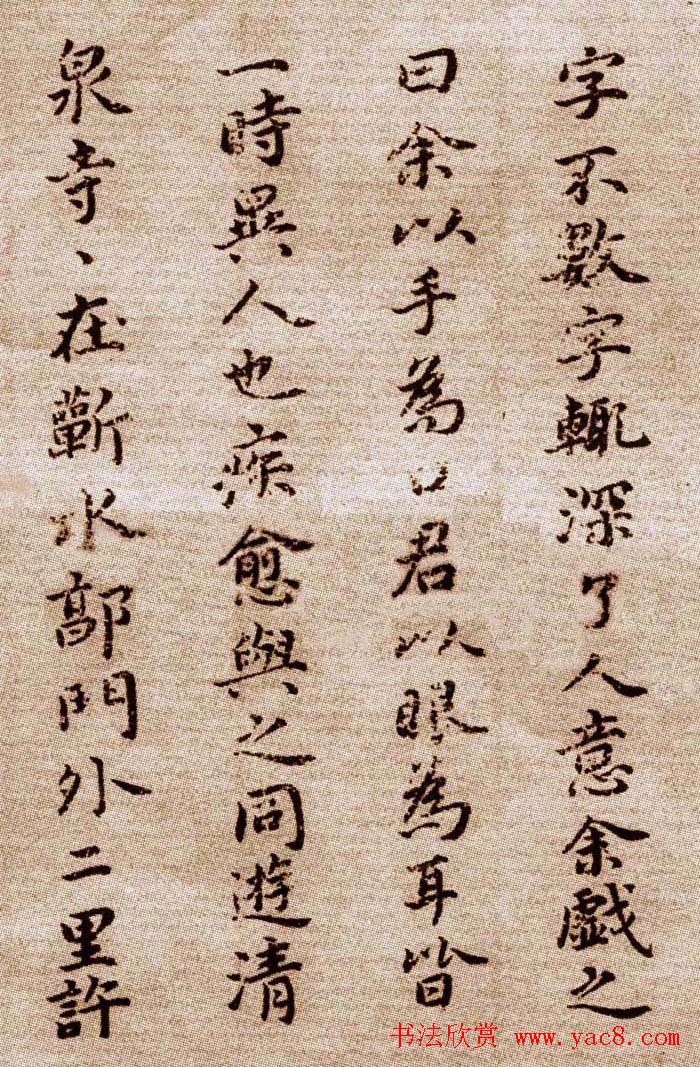 字不數字輒深了人意余戲之
曰余以手為口君以眼為耳皆
一時異人也疾愈與之同遊清
泉寺〻在蘄水郭門外二里許
书法欣赏 www.yac8.com